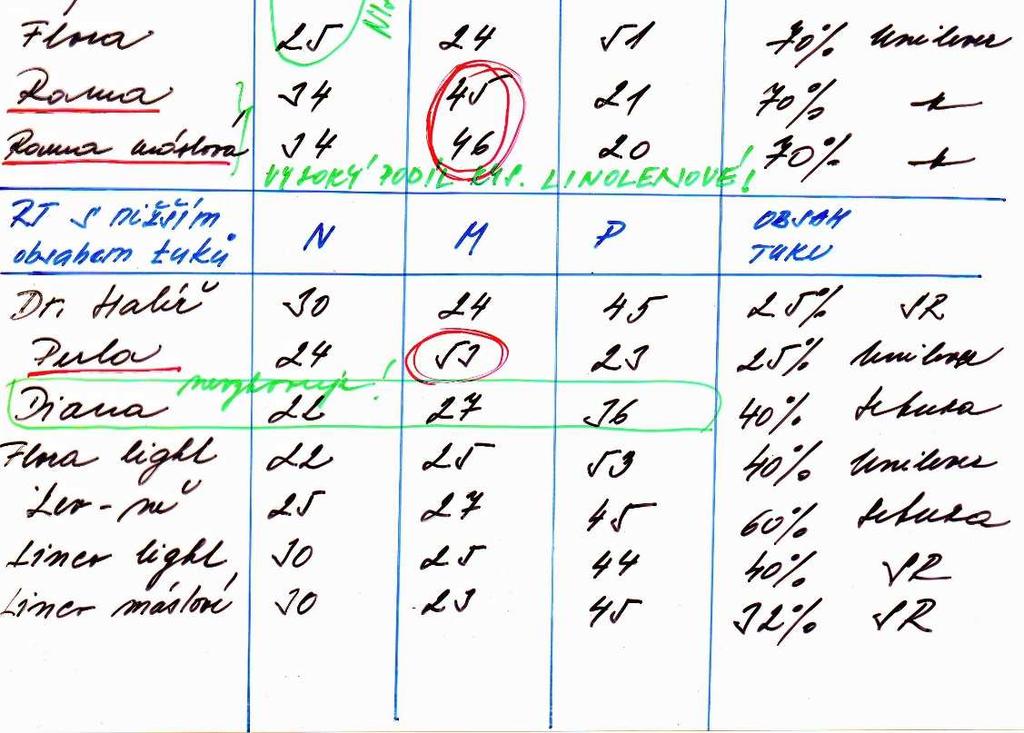 Flora 25 24 51 70% Unilever
Rama 34 45 21 70%
Rama máslová 34 46 20 70%
VYSOKÝ PODÍL KYS. LINOLENOVÉ!
RT S nižším obsahem tuků N M P OBSAH TUKU
Dr. Halíř 30 24 45 25% SR
Perla 24 53 23 25% Unilever
nevyhovuje!
Diana 22 27 36 40% Setuza
Flora light 22 25 53 40% Unilever
27 45 60% Setuza
Linco light 30 25 44 40% SR
Linco máslové 30 23 45 32% SR